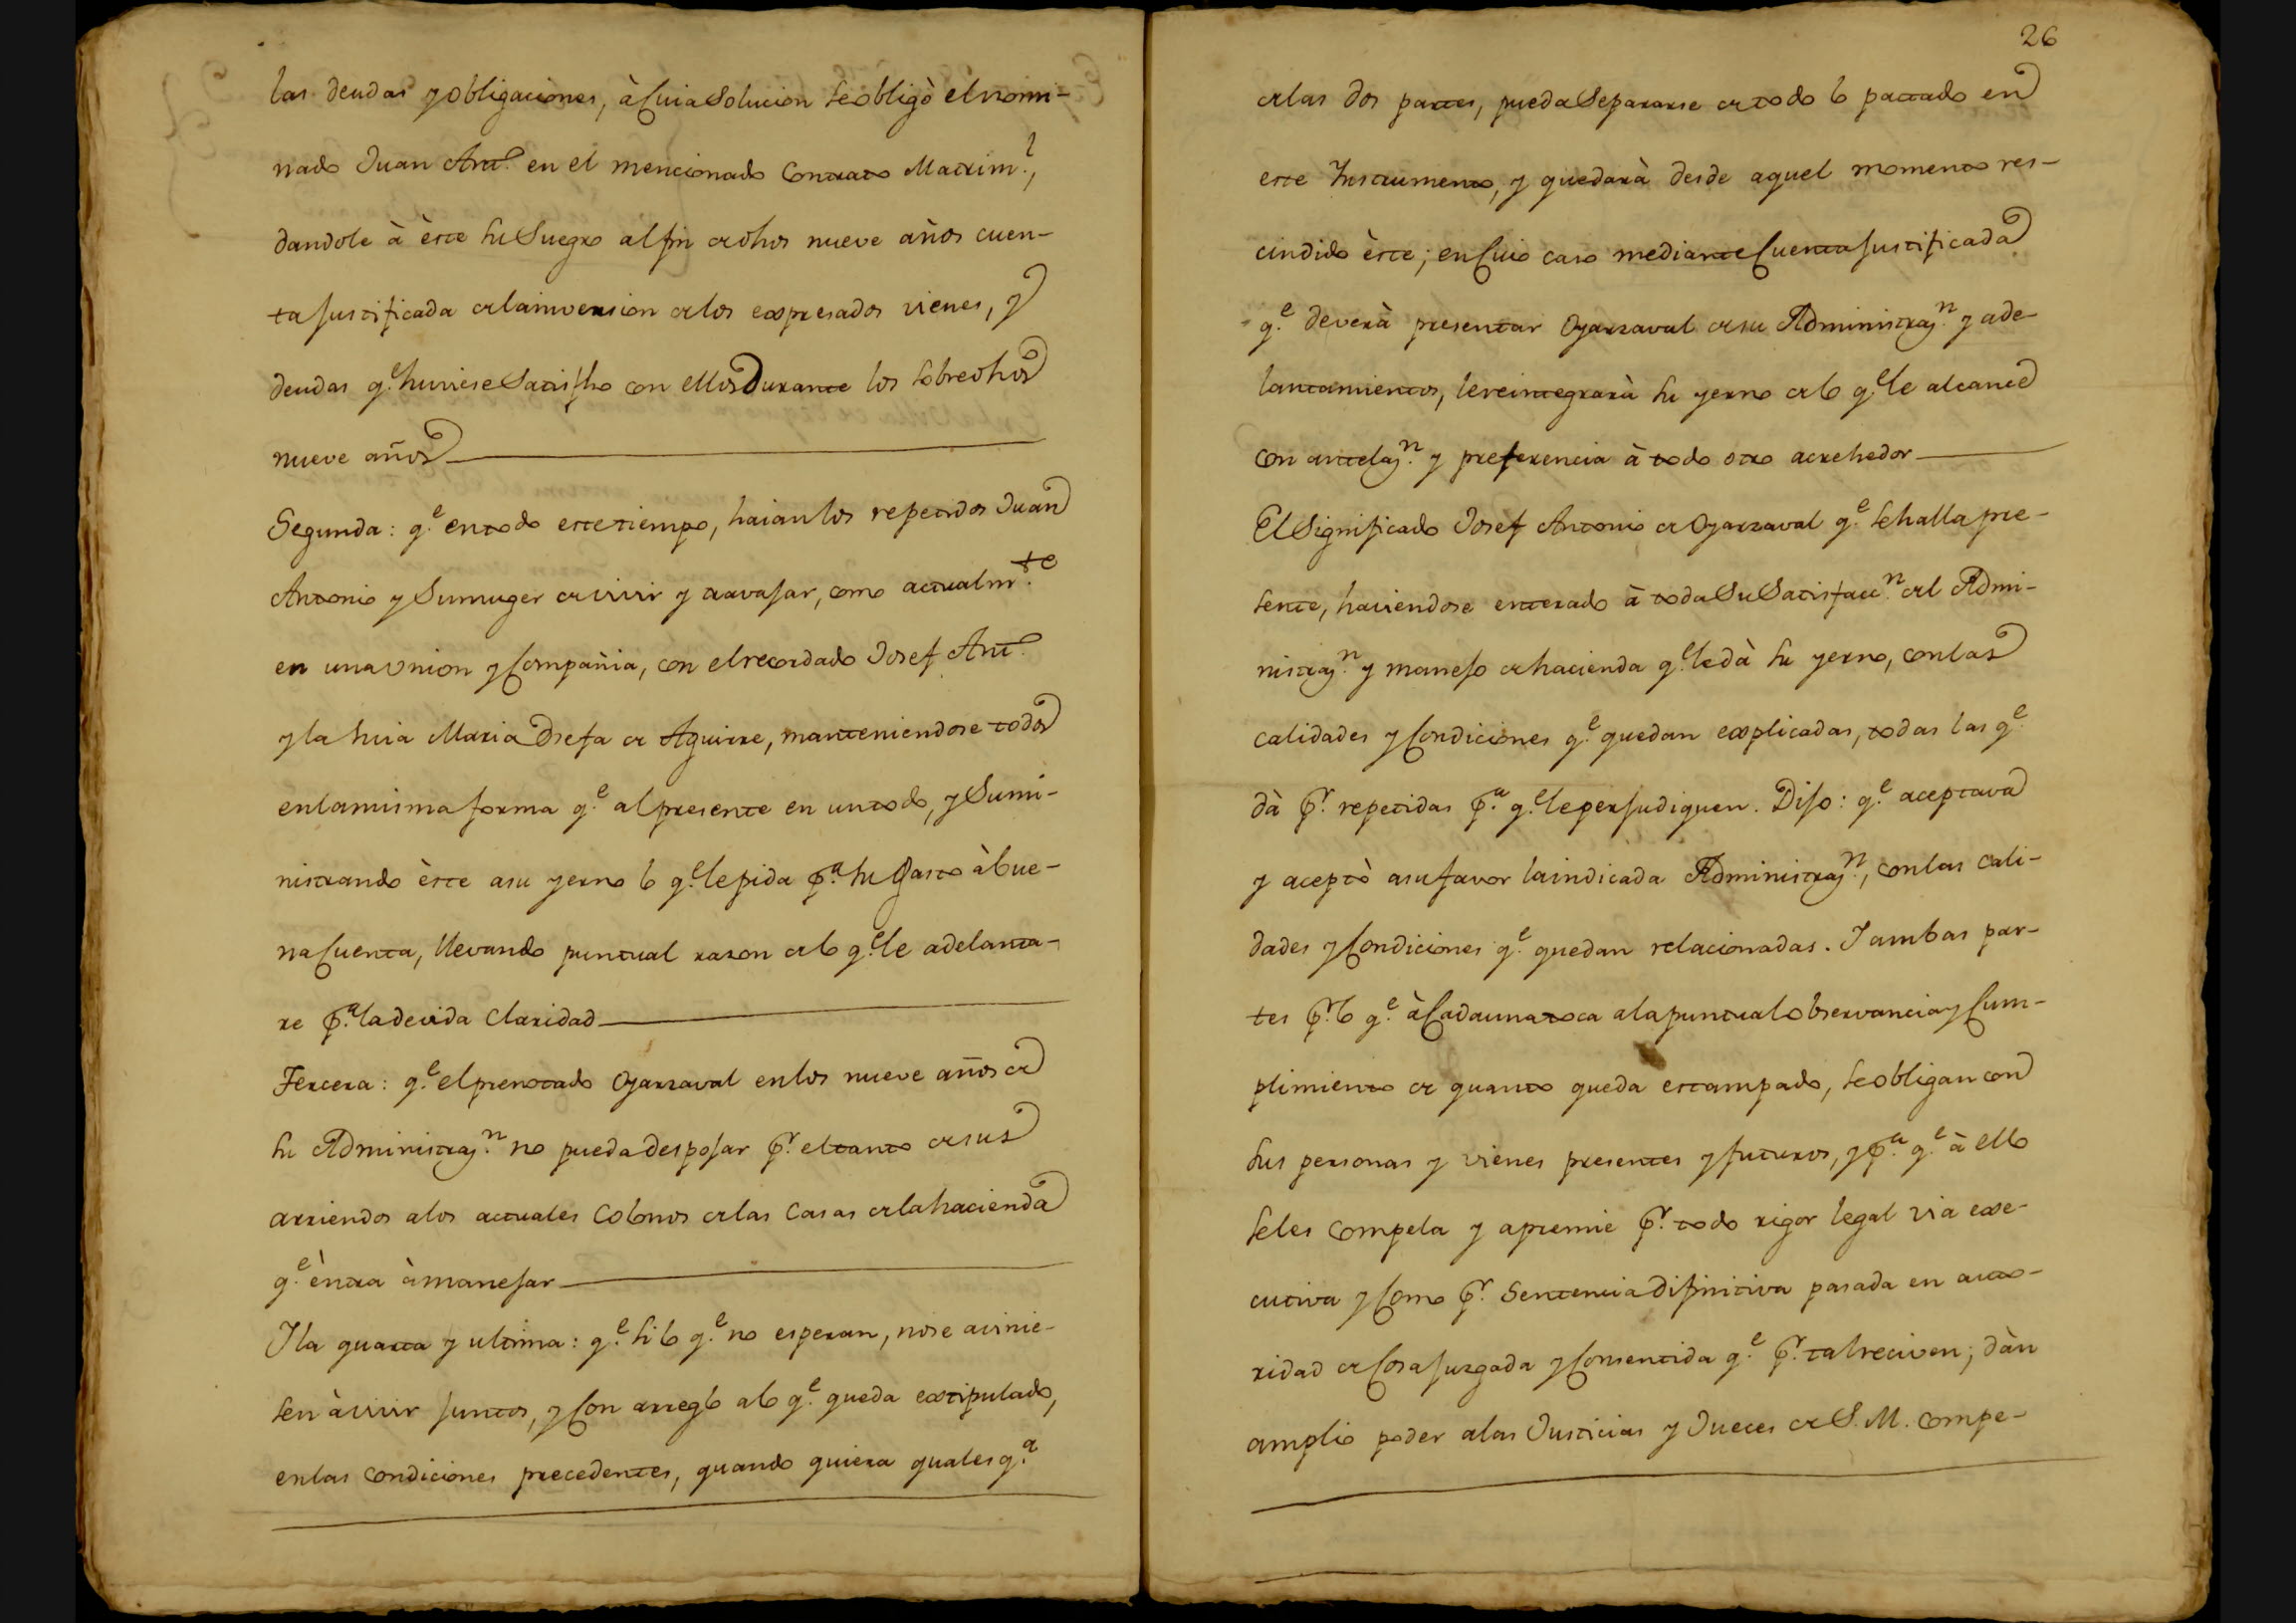 las deudas y obligaciones, à Cuia Solucion se obligò el nomi-
nado Juan Antº. en el mencionado Contrato Matriml.,
dandole à èste su Suegro al fin de dhos nueve años cuen-
ta justificada de la inversion de los expresados vienes, y
deudas q.e huviese Satisfho con ellos Durante los sobredhos
nueve años
Segunda: q.e en todo este tiempo, haian los repetidos Juan
Antonio y Su muger de vivir y travajar, como actualm.te
en una Union y Compañia, con el recordado Josef Antº.
y la suia Maria Josefa de Aguirre, manteniendose todos
en la misma forma q.e al presente en un todo, y Sumi-
nistrando èste a su yerno lo q.e le pida p.a su Gasto à bue-
na Cuenta, llevando puntual razon de lo q.e le adelanta-
re p.a la devida Claridad
Tercera: q.e el prenotado Oyarzaval en los nueve años de
su Administraz.n no pueda despojar p.r el tanto de sus
arriendos a los actuales Colonos de las Casas de la hacienda
q.e èntra à manejar
Y la quarta y ultima: q.e si lo q.e no esperan, no se avinie-
sen à vivir juntos, y Con arreglo a lo q.e queda extipulado,
en las Condiciones precedentes, quando quiera qualesq.a
26
de las dos partes, pueda Separarse de todo lo pactado en
este Instrumento, y quedarà desde aquel momento res-
cindido èste; en Cuio caso mediante Cuenta justificada
q.e deverà presentar Oyarzaval de su Administraz.n y ade-
lantamientos, le reintegrarà su yerno de lo q.e le alcance
Con antelaz.n y preferencia à todo otro acrehedor
El Significado Josef Antonio de Oyarzaval q.e se halla pre-
sente, haviendose enterado à toda Su Satisfacc.n del Admi-
nistraz.n y manejo de hacienda q.e le dà su yerno, con las
calidades y Condiciones q.e quedan explicadas, todas las q.e
dà p.r repetidas p.a q.e le perjudiquen. Dijo: q.e aceptava
y aceptò a su favor la indicada Administraz.n, con las Cali-
dades y Condiciones q.e quedan relacionadas. Y ambas par-
tes p.r lo q.e à Cada una toca a la puntual observancia y Cum-
plimiento de quanto queda estampado, se obligan con
sus personas y vienes presentes y futuros, y p.a q.e à ello
se les Compela y apremie p.r todo rigor legal via exe-
cutiva y Como p.r Sentencia Difinitiva pasada en auto-
ridad de Cosa juzgada y Consentida q.e p.r tal reciven; dàn
amplio poder a las Justicias y Jueces de S. M. Compe-